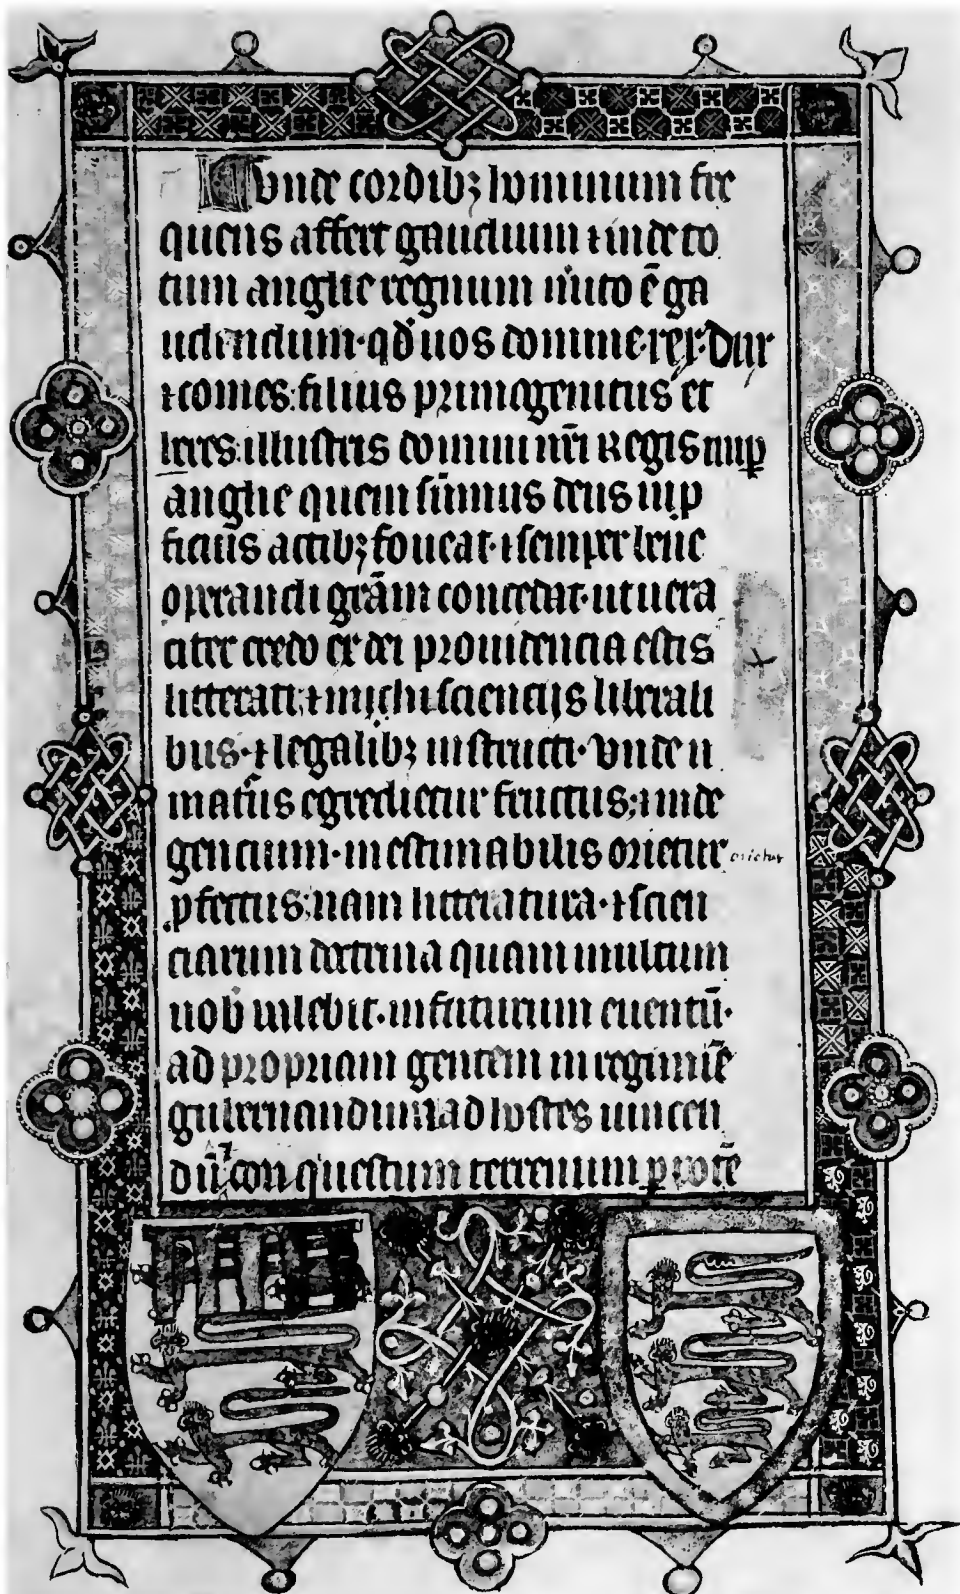 Unde cordibꝫ hominum fre
quens affert gaudium ⁊ inde to
tum anglie regnum mito ē ga
udendum · qđ uos domine · rex · Dux
⁊ comes : filius primogenitus et
heres : illustris domini nr̄i Regis nup̄
anglie quem sūmus deus
actibꝫ foueat · ⁊ semper bene
operandi grām concedat · ut uera
citer credo ex dei prouidencia estis
litterati : ⁊ michi sciencijs liberali
bus · ⁊ legalibꝫ instructi · Unde
egredietur fructus ; ⁊ inde
gencium · inestimabilis orietur orietur
ꝓfectus ; nam litteratura · ⁊ scien
ciarum doctrina quam multum
uob ualebit · in futurum euentū ·
ad propriam gentem in regimīe
gubernandum ⁊ ad hostes uincen
dū ⁊ conquestum terrenum